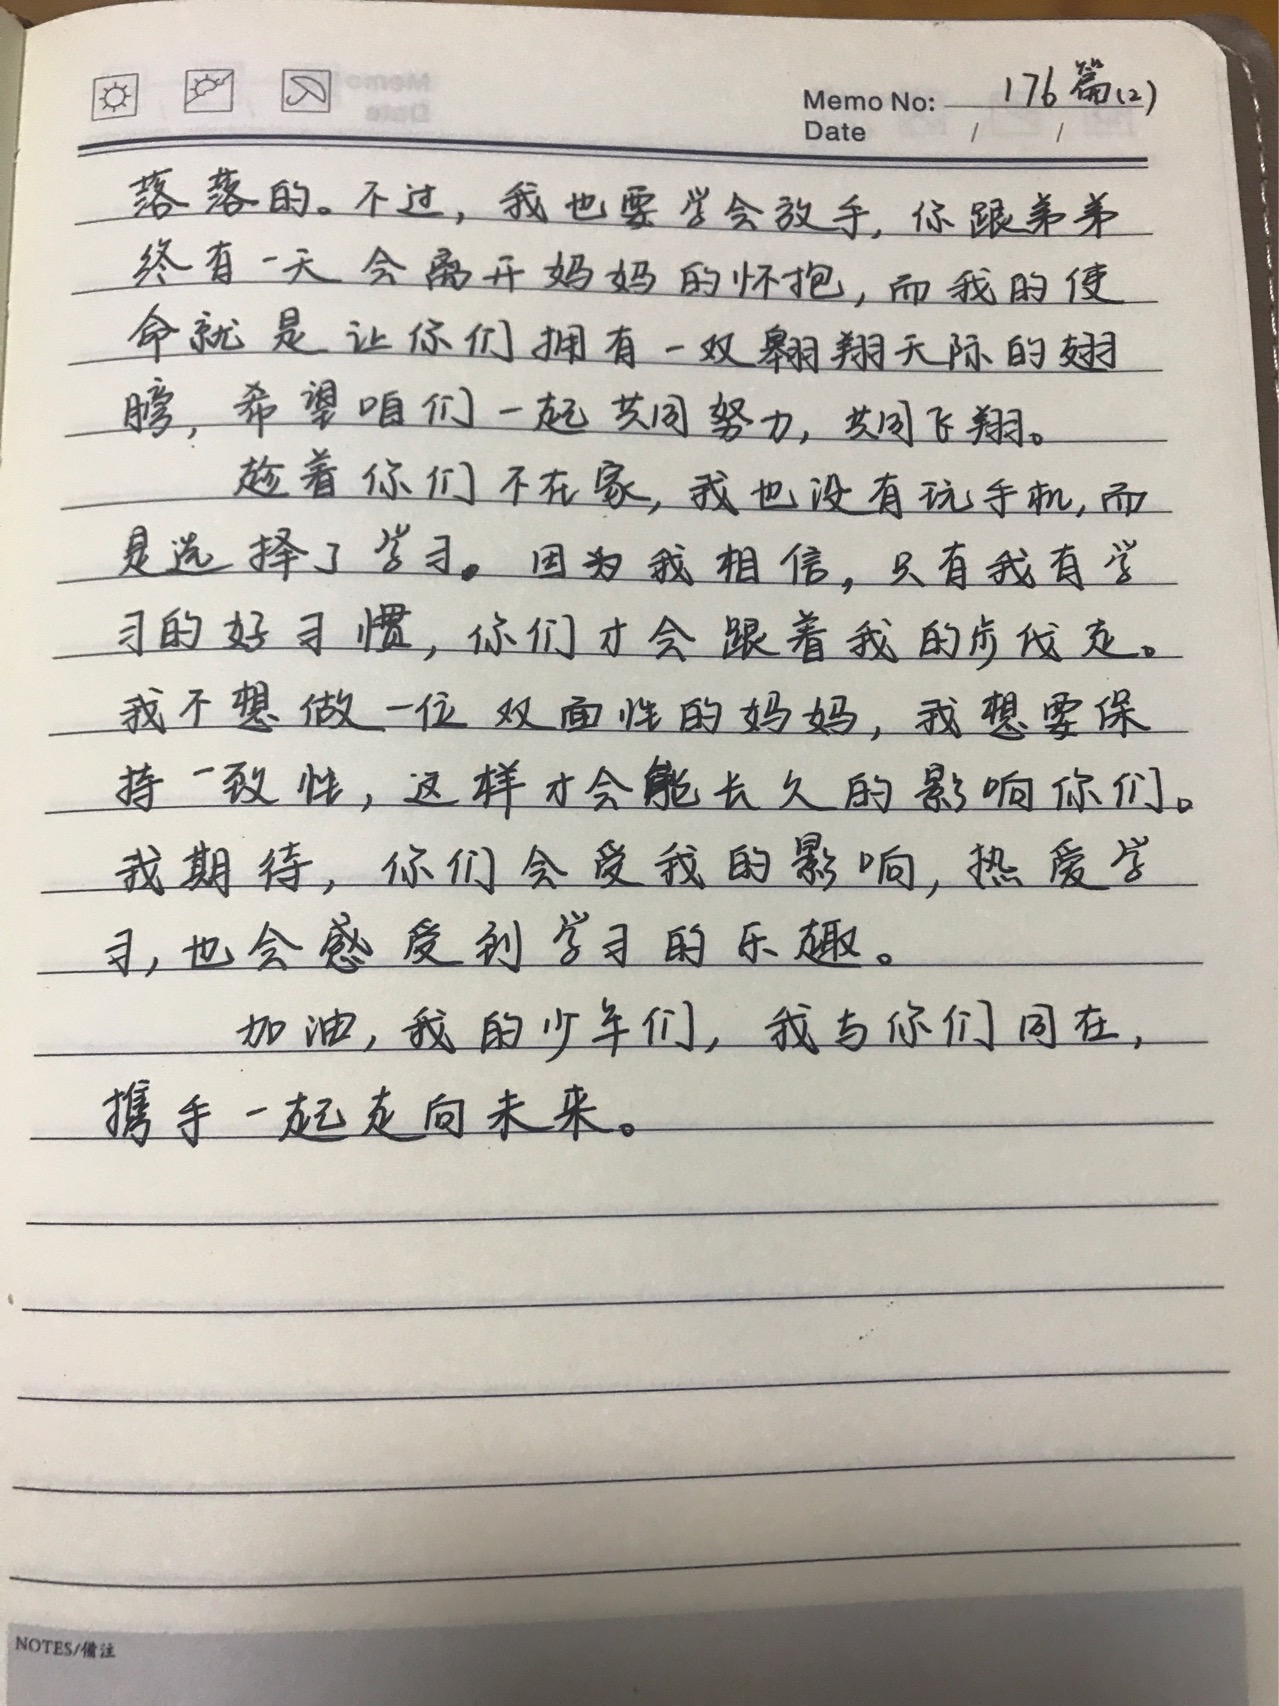 Memo
Date
Memo No: 176篇(2)
Date / /
落落的。不过，我也要学会放手，你跟弟弟
终有一天会离开妈妈的怀抱，而我的使
命就是让你们拥有一双翱翔天际的翅
膀，希望咱们一起共同努力，共同飞翔。
趁着你们不在家，我也没有玩手机，而
是选择了学习。因为我相信，只有我有学
习的好习惯，你们才会跟着我的步伐走。
我不想做一位双面性的妈妈，我想要保
持一致性，这样才会能长久的影响你们。
我期待，你们会受我的影响，热爱学
习，也会感受到学习的乐趣。
加油，我的少年们，我与你们同在，
携手一起走向未来。
NOTES/備注